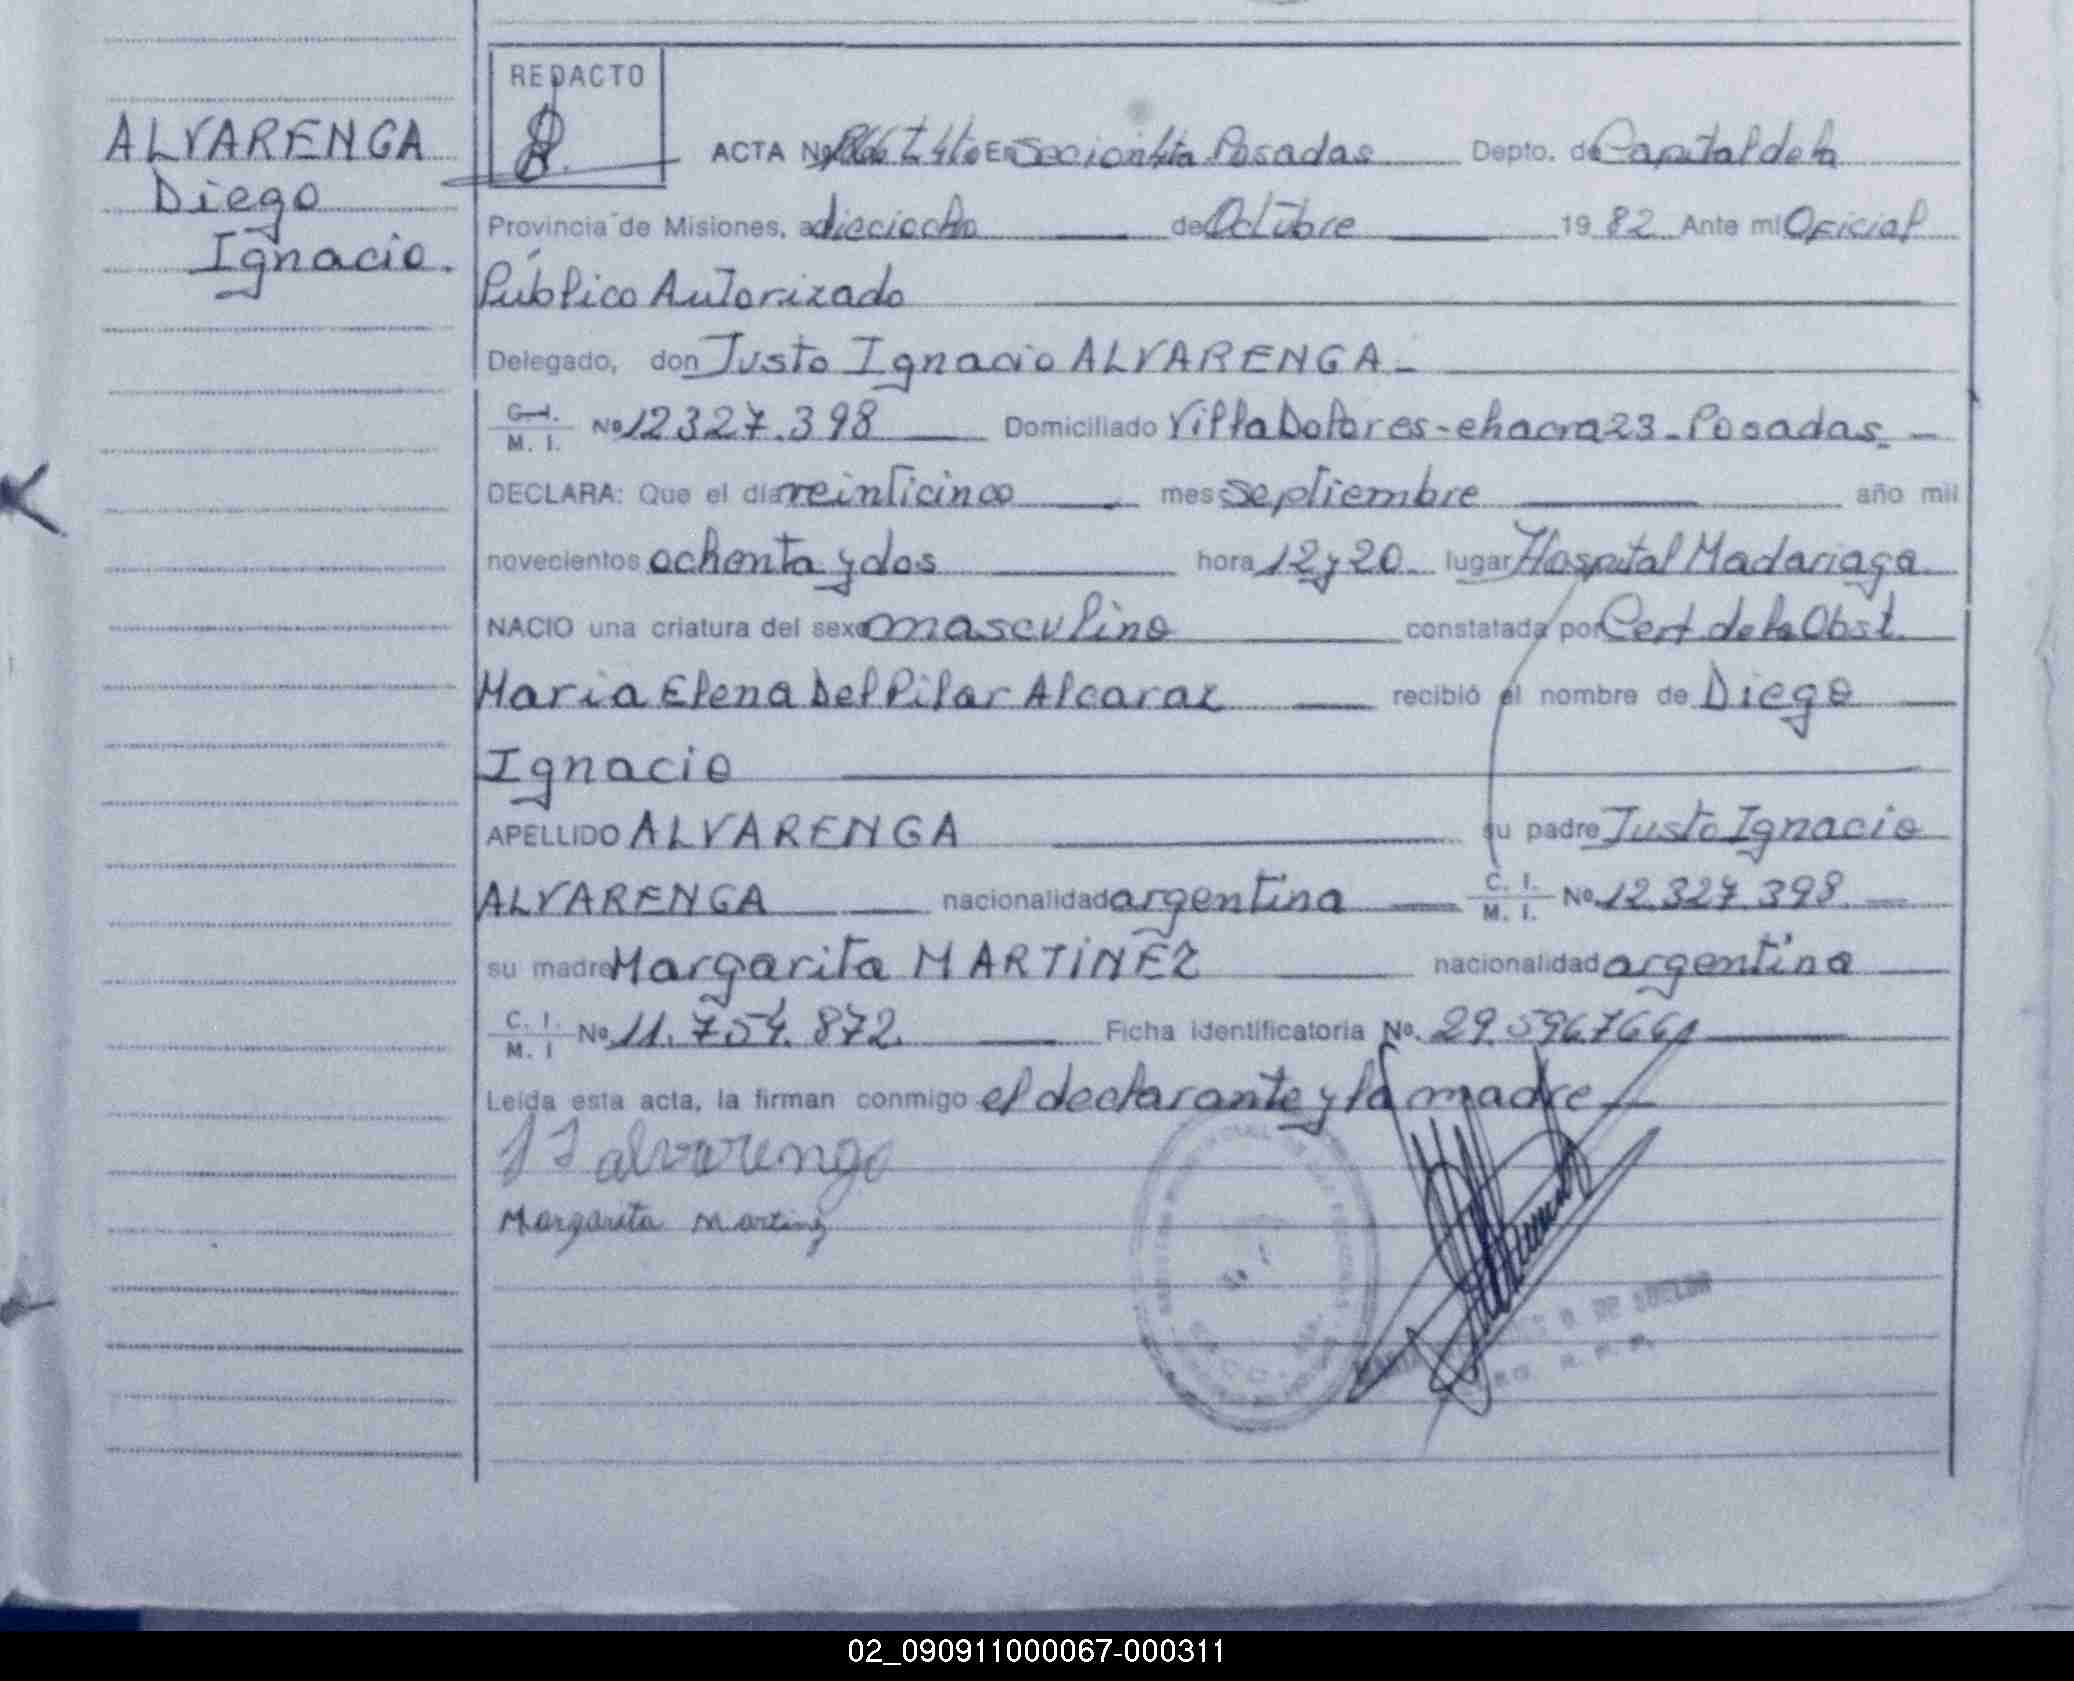 REDACTO
ALVARENGA
Diego
Ignacio.
ACTA No En Seccion 4ta Posadas Depto. de Capital de la
Provincia de Misiones, a dieciocho de Octubre 19 82 Ante mi Oficial
Público Autorizado
Delegado, don Justo Ignacio ALVARENGA
C. I. M. I. No 12327.398 Domiciliado Villa Dolores - chacra 23 - Posadas. -
DECLARA: Que el dia veinticinco mes septiembre año mil
novecientos ochenta y dos hora 12 y 20 lugar Hospital Madariaga
NACIO una criatura del sexo masculino constatada por Cert de la Obst.
Maria Elena Del Pilar Alcaraz recibió el nombre de Diego
Ignacio
APELLIDO ALVARENGA su padre Justo Ignacio
ALVARENGA nacionalidad argentina C. I. M. I. No 12.327.398.
su madre Margarita MARTINEZ nacionalidad argentina
C. I. M. I No 11.754.872. Ficha identificatoria No. 29.596766
Leida esta acta, la firman conmigo el declarante y la madre
JI alvarenga
Margarita Martinez
02_090911000067-000311